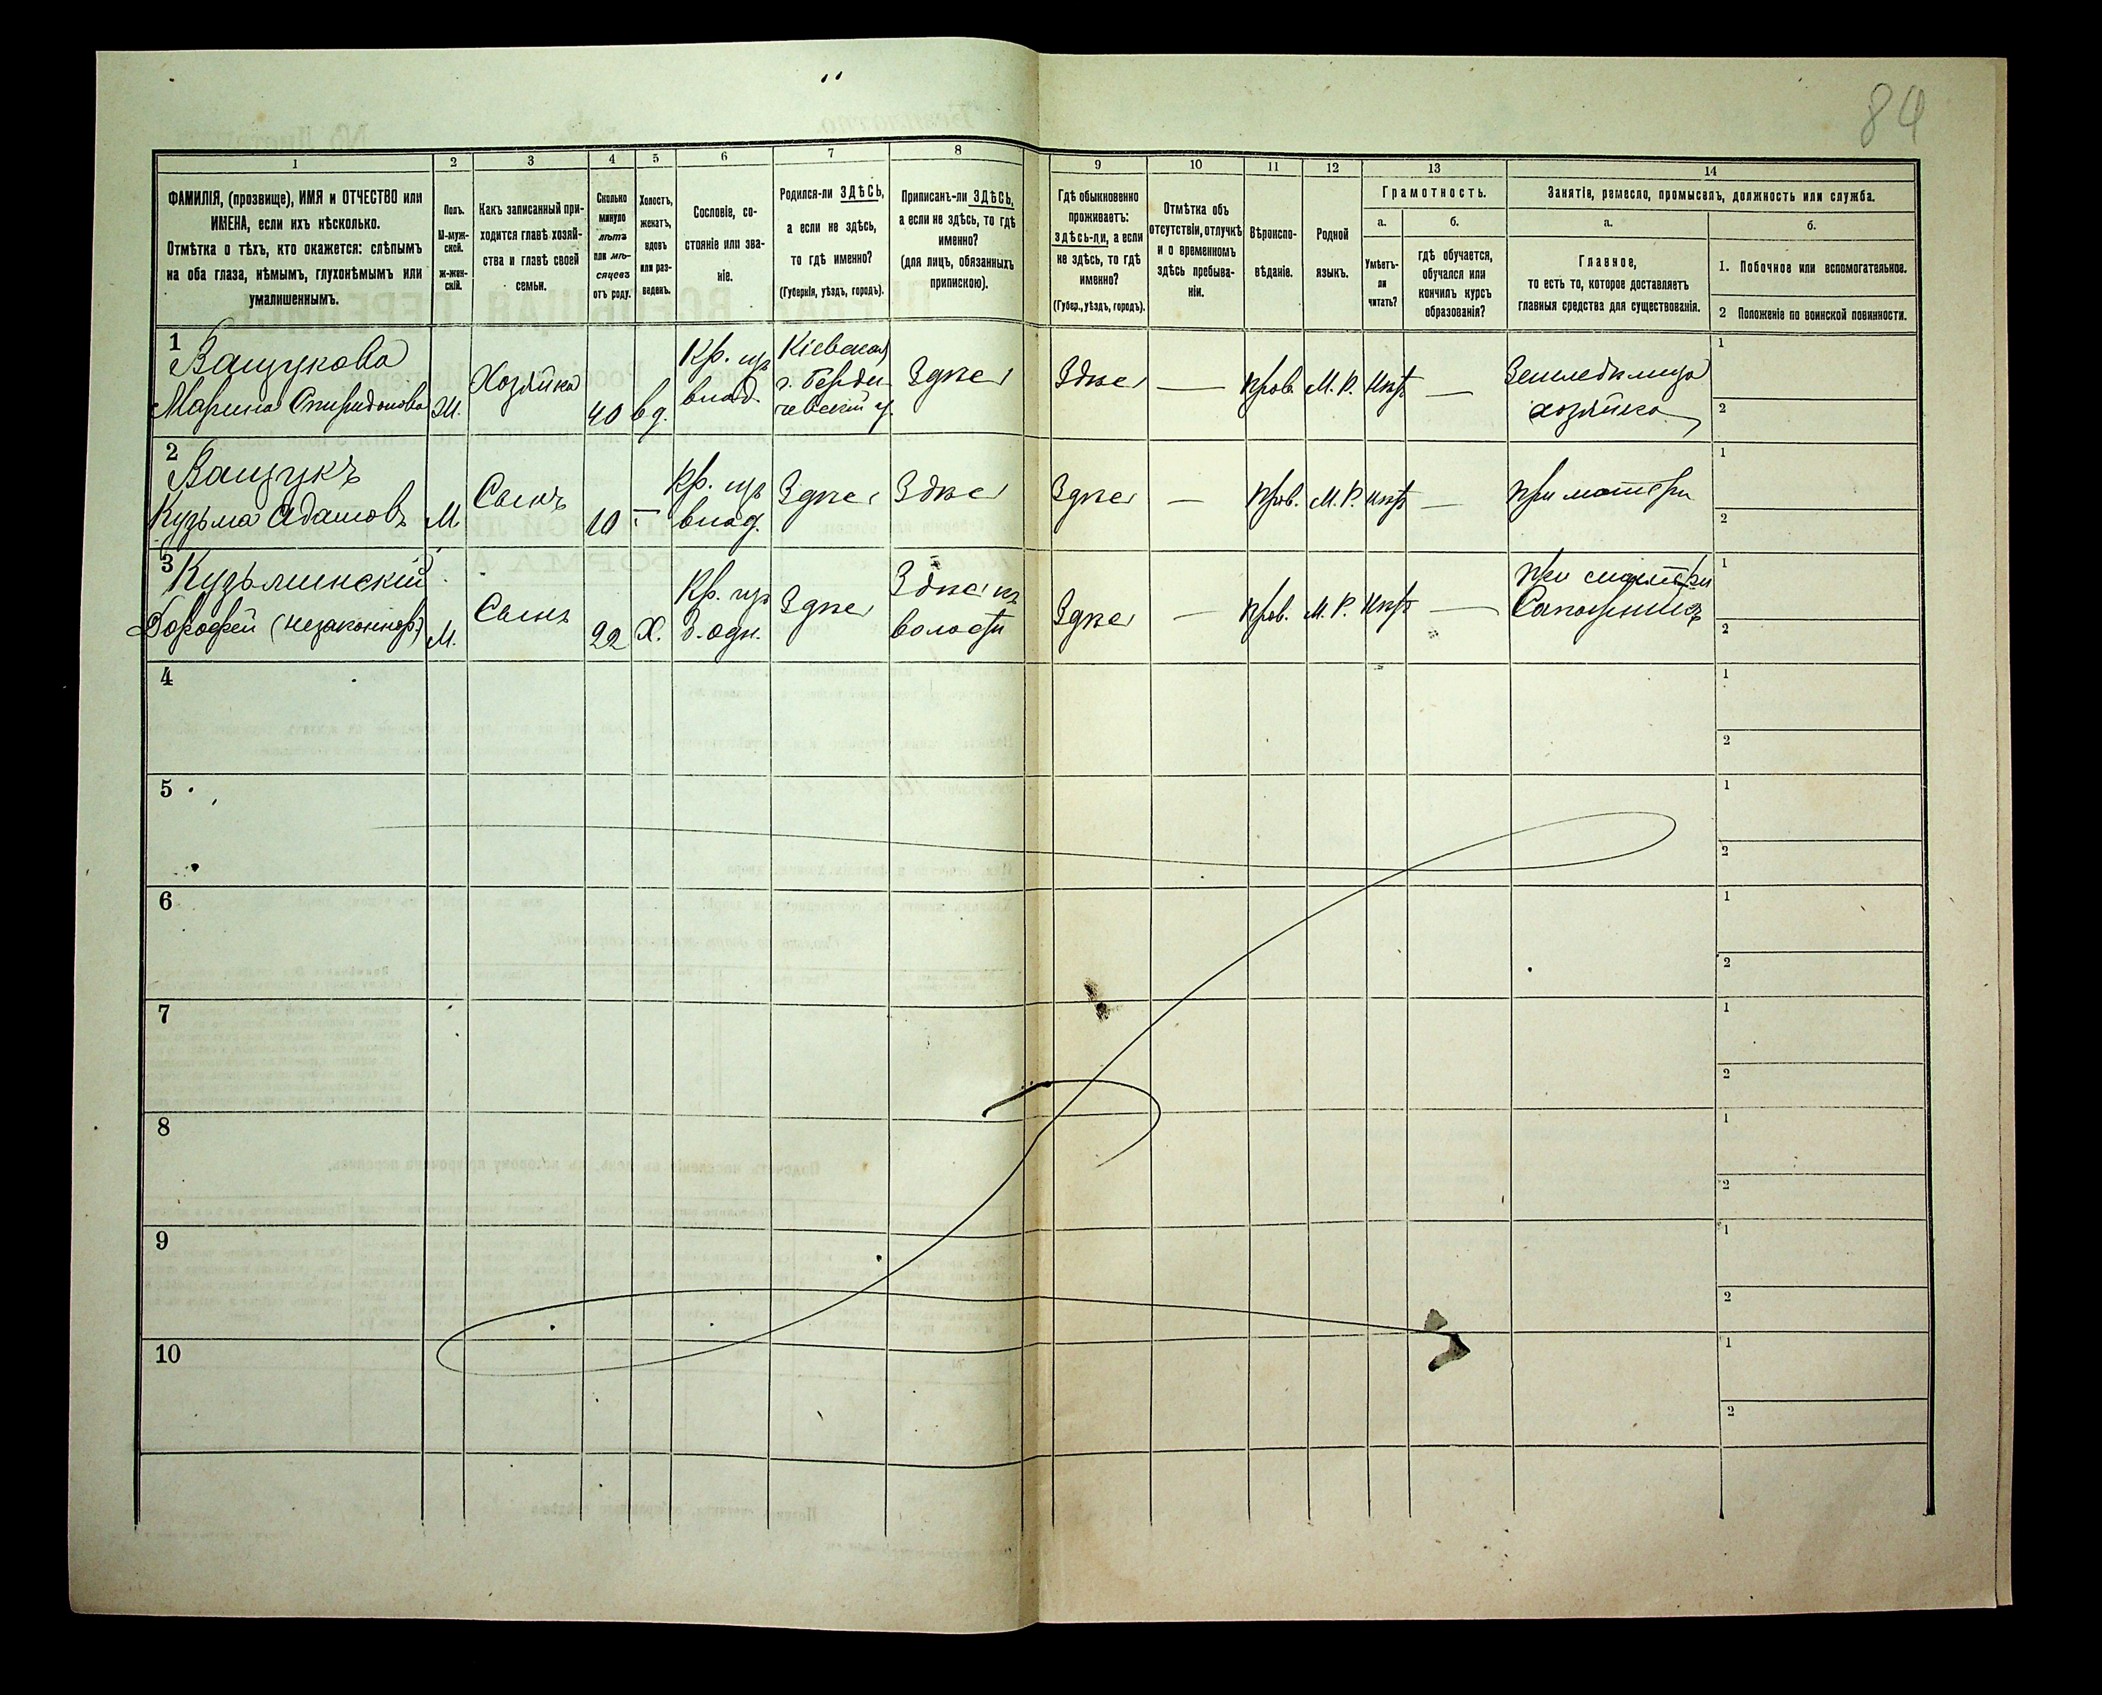 84
1 2 3 4 5 6 7 8 9 10 11 12 13 14
ФАМИЛІЯ, (прозвище), ИМЯ и ОТЧЕСТВО или
ИМЕНА, если ихъ нѣсколько.
Отмѣтка о тѣхъ, кто окажется: слѣпымъ
на оба глаза, нѣмымъ, глухонѣмымъ или
умалишеннымъ.
Полъ.
М-муж-
ской.
ж-жен-
скій.
Какъ записанный при-
ходится главѣ хозяй-
ства и главѣ своей
семьи.
Сколько
минуло
лѣтъ
или мѣ-
сяцевъ
отъ роду.
Холостъ,
женатъ,
вдовъ
или раз-
веденъ.
Сословіе, со-
стояніе или зва-
ніе.
Родился-ли ЗДѢСЬ,
а если не здѣсь,
то гдѣ именно?
(Губернія, уѣздъ, городъ).
Приписанъ-ли ЗДѢСЬ,
а если не здѣсь, то гдѣ
именно?
(для лицъ, обязанныхъ
припискою).
Гдѣ обыкновенно
проживаетъ:
здѣсь-ли, а если
не здѣсь, то гдѣ
именно?
(Губер., уѣздъ, городъ).
Отмѣтка объ
отсутствіи, отлучкѣ
и о временномъ
здѣсь пребыва-
ніи.
Вѣроиспо-
вѣданіе.
Родной
языкъ.
Грамотность.
а. б.
Умѣетъ-
ли
читать?
гдѣ обучается,
обучался или
кончилъ курсъ
образованія?
Занятіе, ремесло, промыселъ, должность или служба.
а. б.
Главное,
то есть то, которое доставляетъ
главныя средства для существованія.
1. Побочное или вспомогательное.
2 Положеніе по воинской повинности.
1
Ващукова
Марина Спиридонова
Ж.
Хозяйка
40
вд.
Кр. изъ
влад.
Кіевская
г. Берди-
чевскій у.
Здѣсь
Здѣсь
—
Прав.
М. Р.
Нѣтъ
—
Земледѣлица
хозяйка
1
2
2
Ващукъ
Кузьма Адамовъ
М.
Сынъ
10
—
Кр. изъ
влад.
Здѣсь
Здѣсь
Здѣсь
—
Прав.
М. Р.
Нѣтъ
—
При матери
1
2
3
Кузьминскій
Дорофей (незаконнор.)
М.
Сынъ
22
Х.
Кр. изъ
Здѣсь
Здѣсь къ
волости
Здѣсь
—
Прав.
М. Р.
Нѣтъ
—
При матери
Сапожникъ
1
2
4
1
2
5
1
2
6
1
2
7
1
2
8
1
2
9
1
2
10
1
2